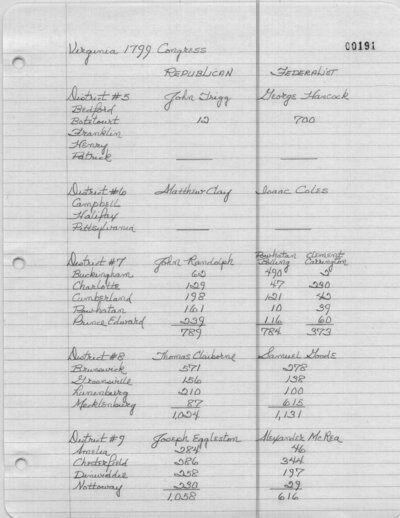 00191
Virginia 1799 Congress
REPUBLICAN FEDERALIST
District #5 John Trigg George Hancock
Bedford
Botetourt 12 700
Franklin
Henry
Patrick
District #6 Matthew Clay Isaac Coles
Campbell
Halifax
Pittsylvania
District #7 John Randolph Powhatan Bolling Clement Carrington
Buckingham 62 490 2
Charlotte 129 47 230
Cumberland 198 121 42
Powhatan 161 10 39
Prince Edward 239 116 60
789 784 373
District #8 Thomas Claiborne Samuel Goode
Brunswick 571 278
Greensville 156 138
Lunenburg 210 100
Mecklenburg 87 615
1,024 1,131
District #9 Joseph Eggleston Alexander McRea
Amelia 284 46
Chesterfield 286 344
Dinwiddie 258 197
Nottoway 230 29
1,058 616